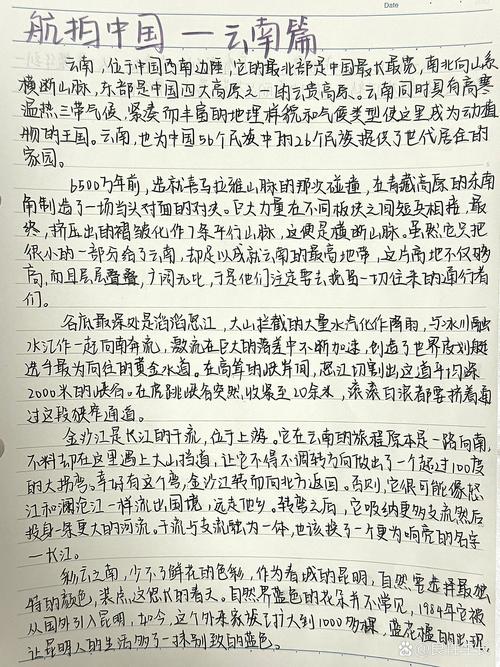 Date
航拍中国 — 云南篇
云南，位于中国西南边陲，它的最北部是中国最长最宽，南北向山系
横断山脉，东部是中国四大高原之一的云贵高原。云南同时具有高寒
温热三带气候，紧凑而丰富的地理样貌和气候类型使这里成为动植
物的王国。云南，也为中国56个民族中的26个民族提供了世代居住的
家园。
6500万年前，造就喜马拉雅山脉的那次碰撞，在青藏高原的东南
角制造了一场当头对面的对决。巨大力量在不同板块之间短兵相接，最
终，挤压出的褶皱化作7条平行山脉，这便是横断山脉。虽然它只把
很小的一部分给了云南，却足以成就云南的最高地带，这片高地不仅够
高，而且层层叠叠，广阔无比，于是他们注定要去挑当一切往来的通行者
们。
谷底最深处是滔滔怒江，大山拦截的大量水汽化作降雨，与冰川融
水汇作一起向南奔流，激流在巨大的落差中不断加速，创造了世界皮划艇
选手最为向往的黄金水道。在高耸的峡片间，怒江切割出这道平均深
2000米的峡谷。在虎跳峡谷突然收紧至20余米，滚滚白浪都要挤着通
过这段狭窄通道。
金沙江是长江的干流，位于上游。它在云南的旅程原本是一路向南，
不料却在这里遇上大山挡道，让它不得不调转方向做出了一个超过100度
的大拐弯。幸好有这个弯，金沙江转而向北方返回。否则，它很可能像怒
江和澜沧江一样流出国境，远走他乡。转弯之后，它吸纳更多支流然后
投身一条更大的河流。干流与支流融为一体，也该换了一个更为响亮的名字
—长江。
彩云之南，少不了鲜花的色彩，作为春城的昆明，自然要选择最独
特的颜色，装点这悠长的春天。自然界蓝色的花朵并不常见，1984年它被
从国外引入昆明，如今，这个外来家族已扩大到1000多棵，蓝花楹的出现，
让昆明人的生活多了一抹别致的蓝色。